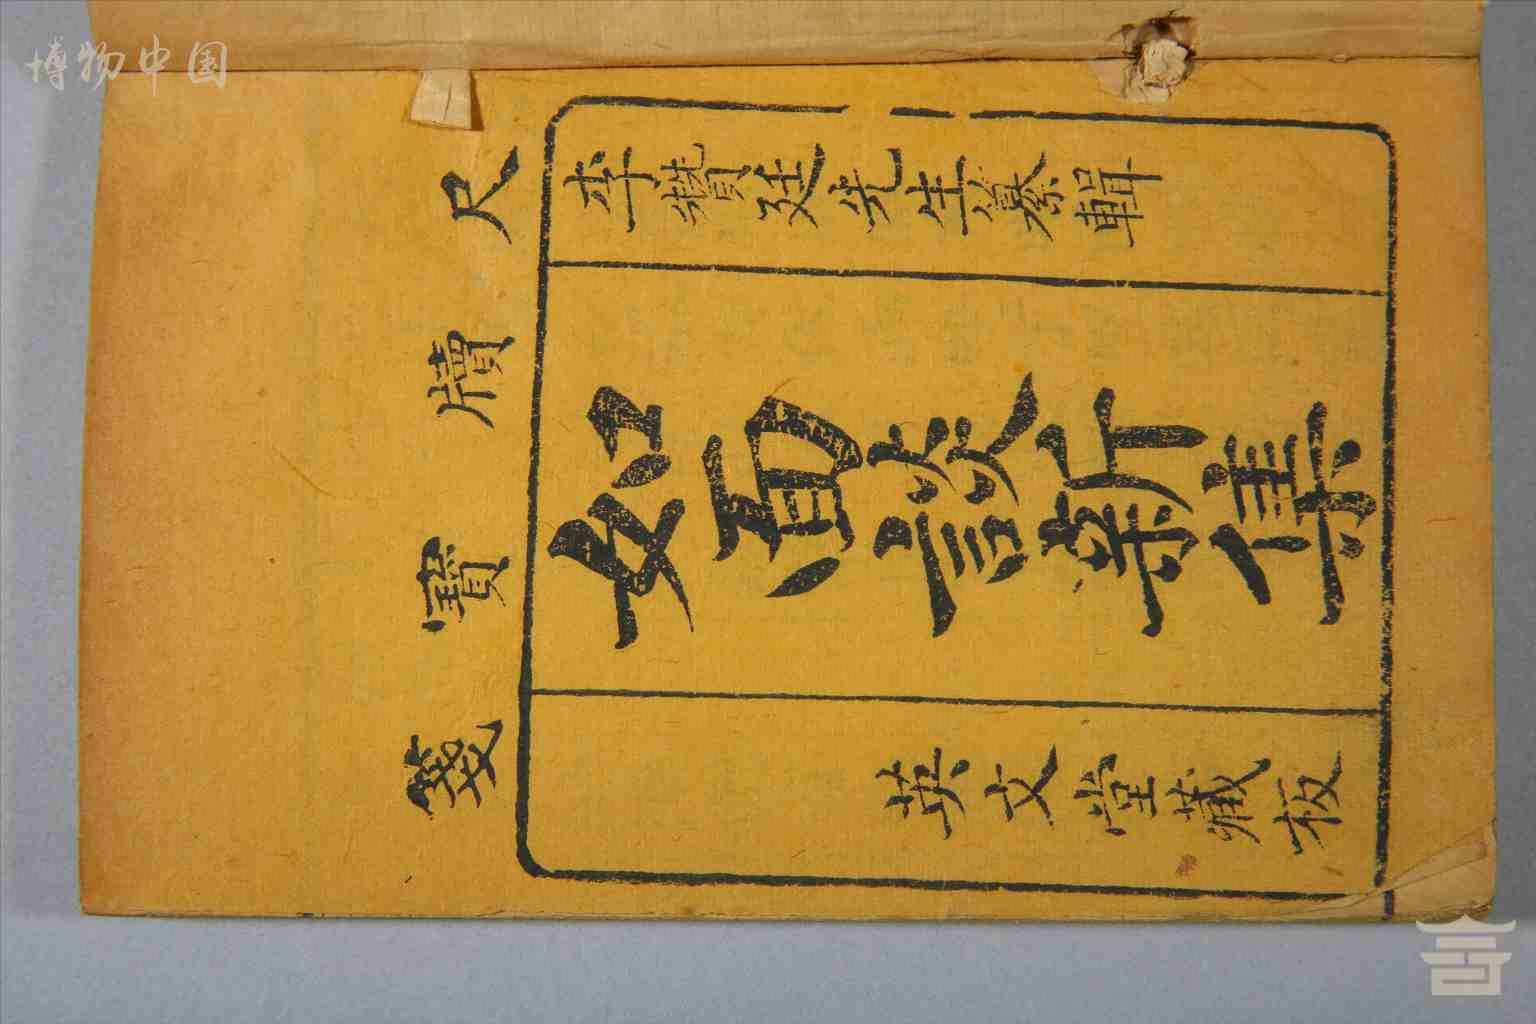 博物中国
尺牘寶箋
李贊廷先生纂輯
如面談新集
英文堂藏板